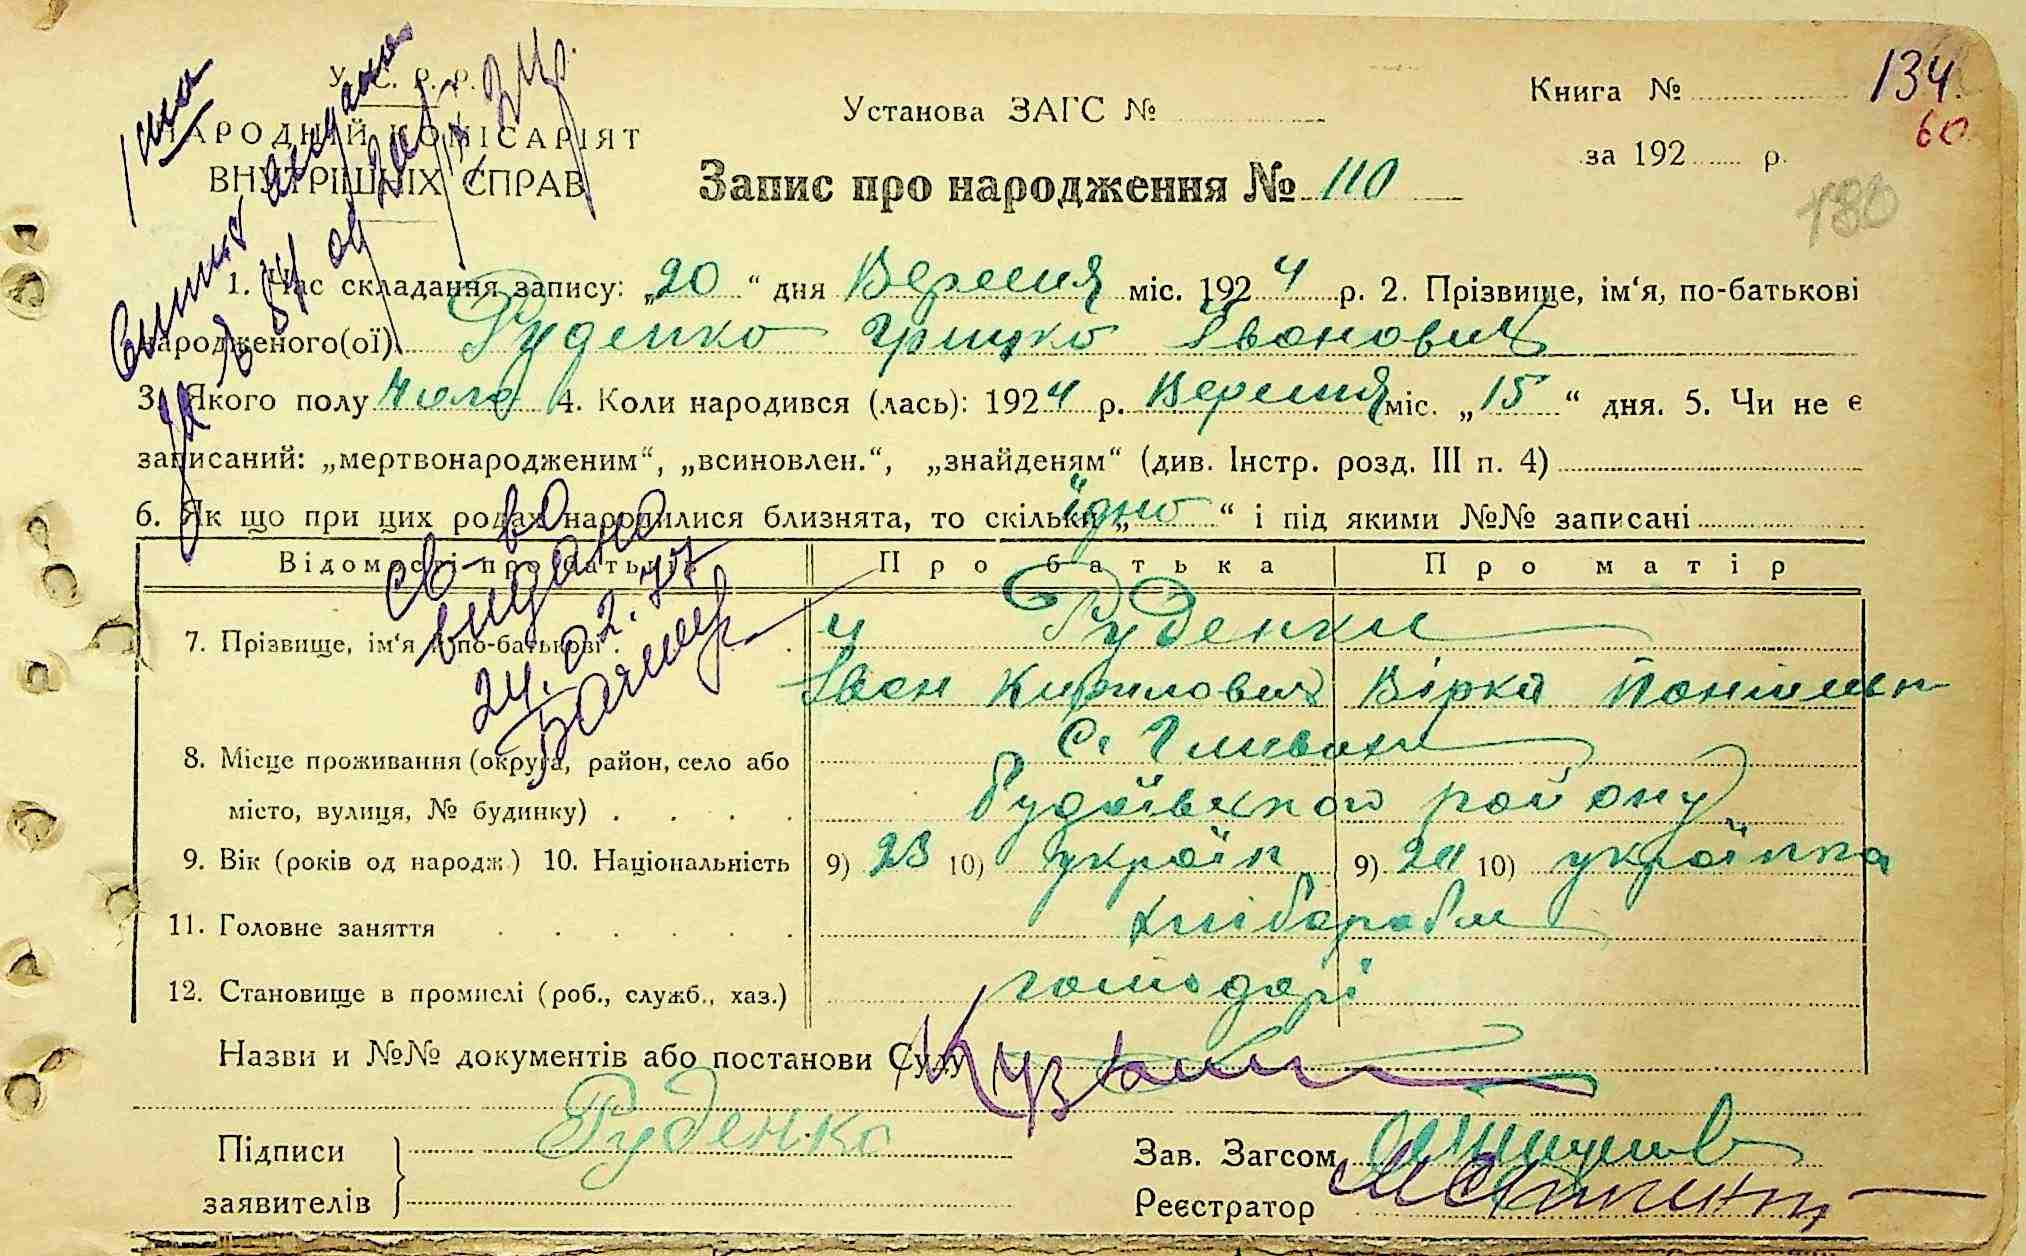 У. С. Р. Р.
НАРОДНІЙ КОМІСАРІЯТ
ВНУТРІШНІХ СПРАВ
Установа ЗАГС №
Книга №
134
60
за 192 р.
130
Запис про народження № 110
1. Час складання запису: „20“ дня Вересня міс. 1924 р. 2. Прізвище, ім‘я, по-батькові
народженого(ої) Руденко Грицко Іванович
3. Якого полу Чоло 4. Коли народився (лась): 1924 р. Вересня міс. „15“ дня. 5. Чи не є
записаний: „мертвонародженим“, „всиновлен.“, „знайденям“ (див. Інстр. розд. III п. 4)
6. Як що при цих родах народилися близнята, то скільки „їдно“ і під якими №№ записані
св-во
видано
24.02.77
Відомості про батьків
Про батька
Про матір
7. Прізвище, ім‘я й по-батькові
Руденки
Іван Кирилович Вірка
8. Місце проживання (округа, район, село або
місто, вулиця, № будинку)
С. Глевахи
Будаївского району
9. Вік (років од народж.) 10. Національність 9) 23 10) україн 9) 21 10) українка
11. Головне заняття
хлібороби
12. Становище в промислі (роб., служб., хаз.)
господарі
Назви и №№ документів або постанови Суду
Підписи
заявителів
Руденко
Зав. Загсом
Реєстратор